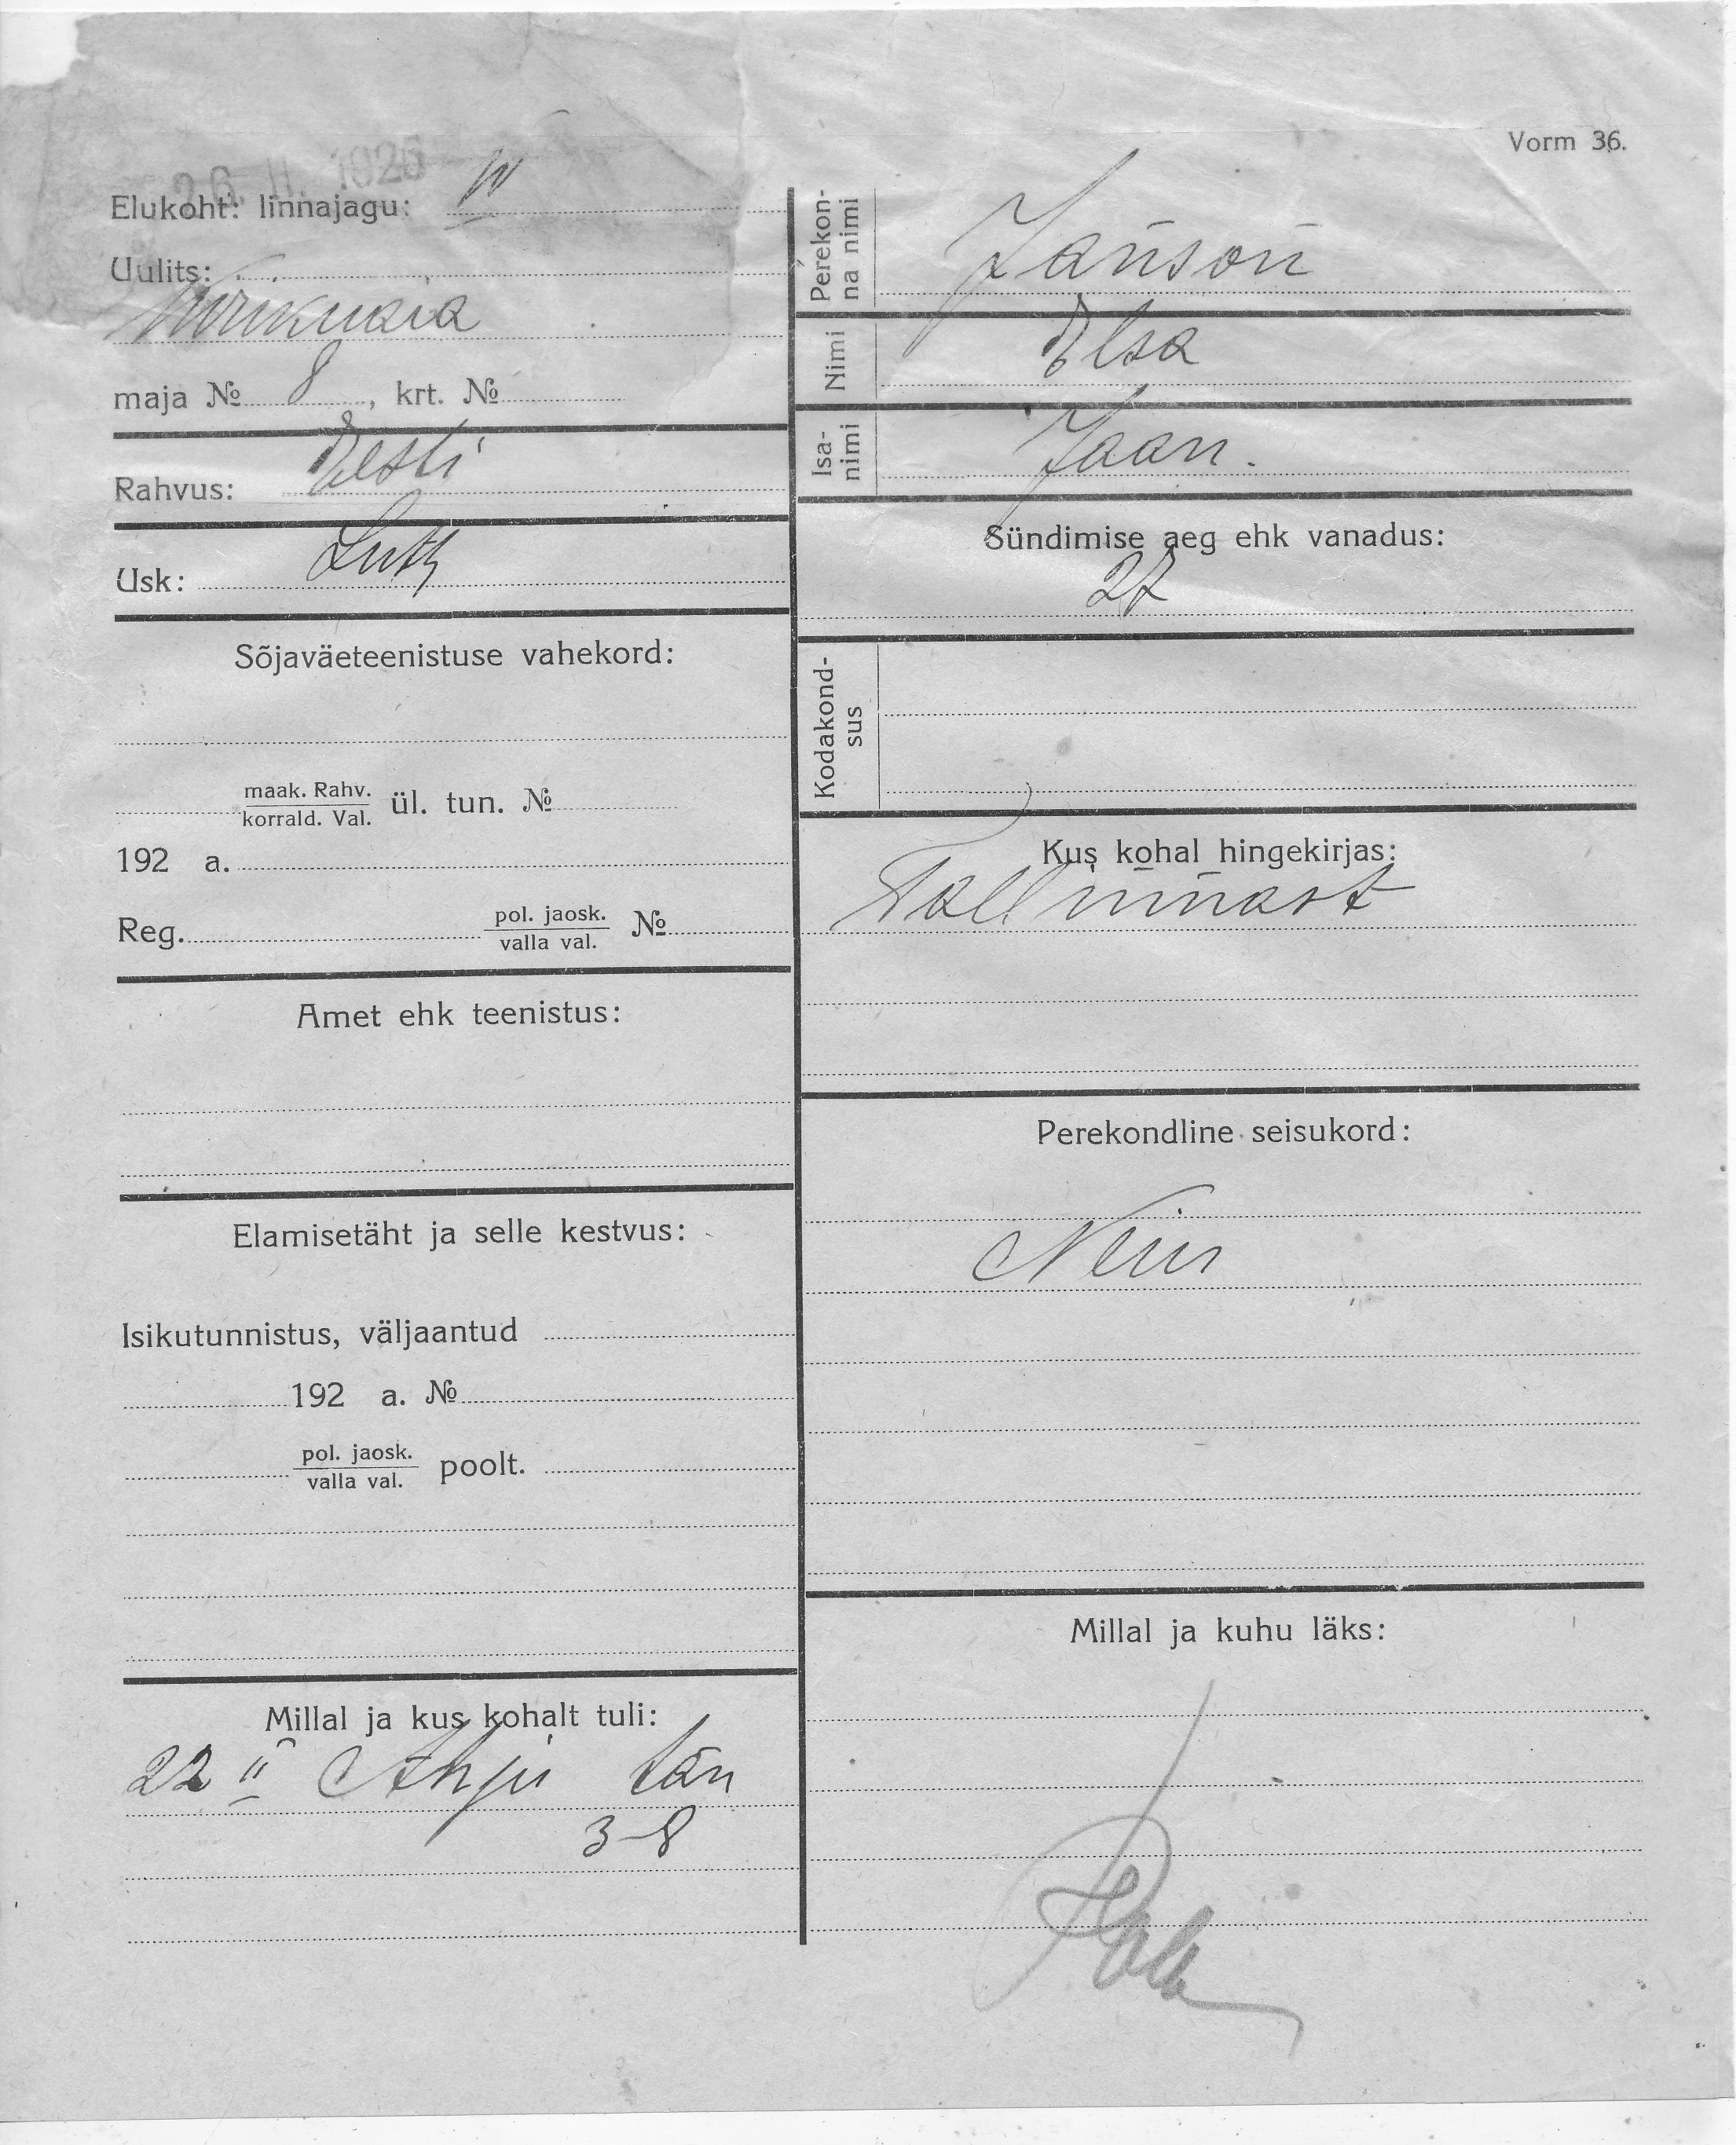 Vorm 36.
26. II. 1926
Elukoht: linnajagu: IV
Uulits:
maja № 8, krt. №
Rahvus: Eesti
Usk: Luth
Sõjaväeteenistuse vahekord:
maak. Rahv.
korrald. Val. ül. tun. №
192 a.
Reg. pol. jaosk.
valla val. №
Amet ehk teenistus:
Elamisetäht ja selle kestvus:
Isikutunnistus, väljaantud
192 a. №
pol. jaosk.
valla val. poolt.
Millal ja kus kohalt tuli:
22 II Ahju tän
3-8
Perekon-
na nimi Janson
Nimi Elsa
Isa-
nimi Jaan.
Sündimise aeg ehk vanadus:
27
Kodakond-
sus
Kus kohal hingekirjas:
Tallinnast
Perekondline seisukord:
Neiu
Millal ja kuhu läks: